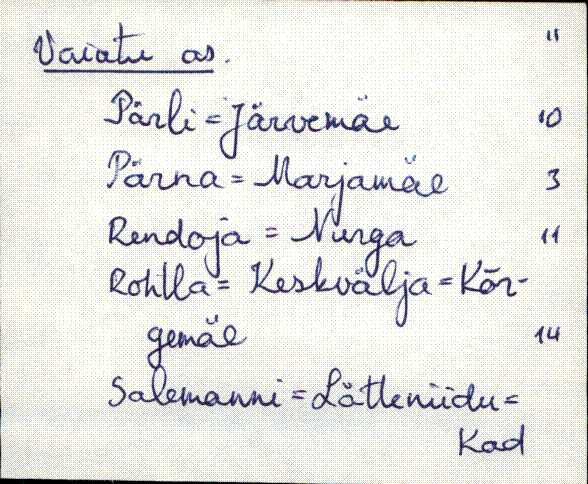 Vaiatu as. 11
Pärli = Järvemäe 10
Pärna = Marjamäe 3
Rendoja = Nurga 11
Rohtla = Keskvälja = Kõr-
gemäe 14
Salemanni = Lätteniidu =
Kad